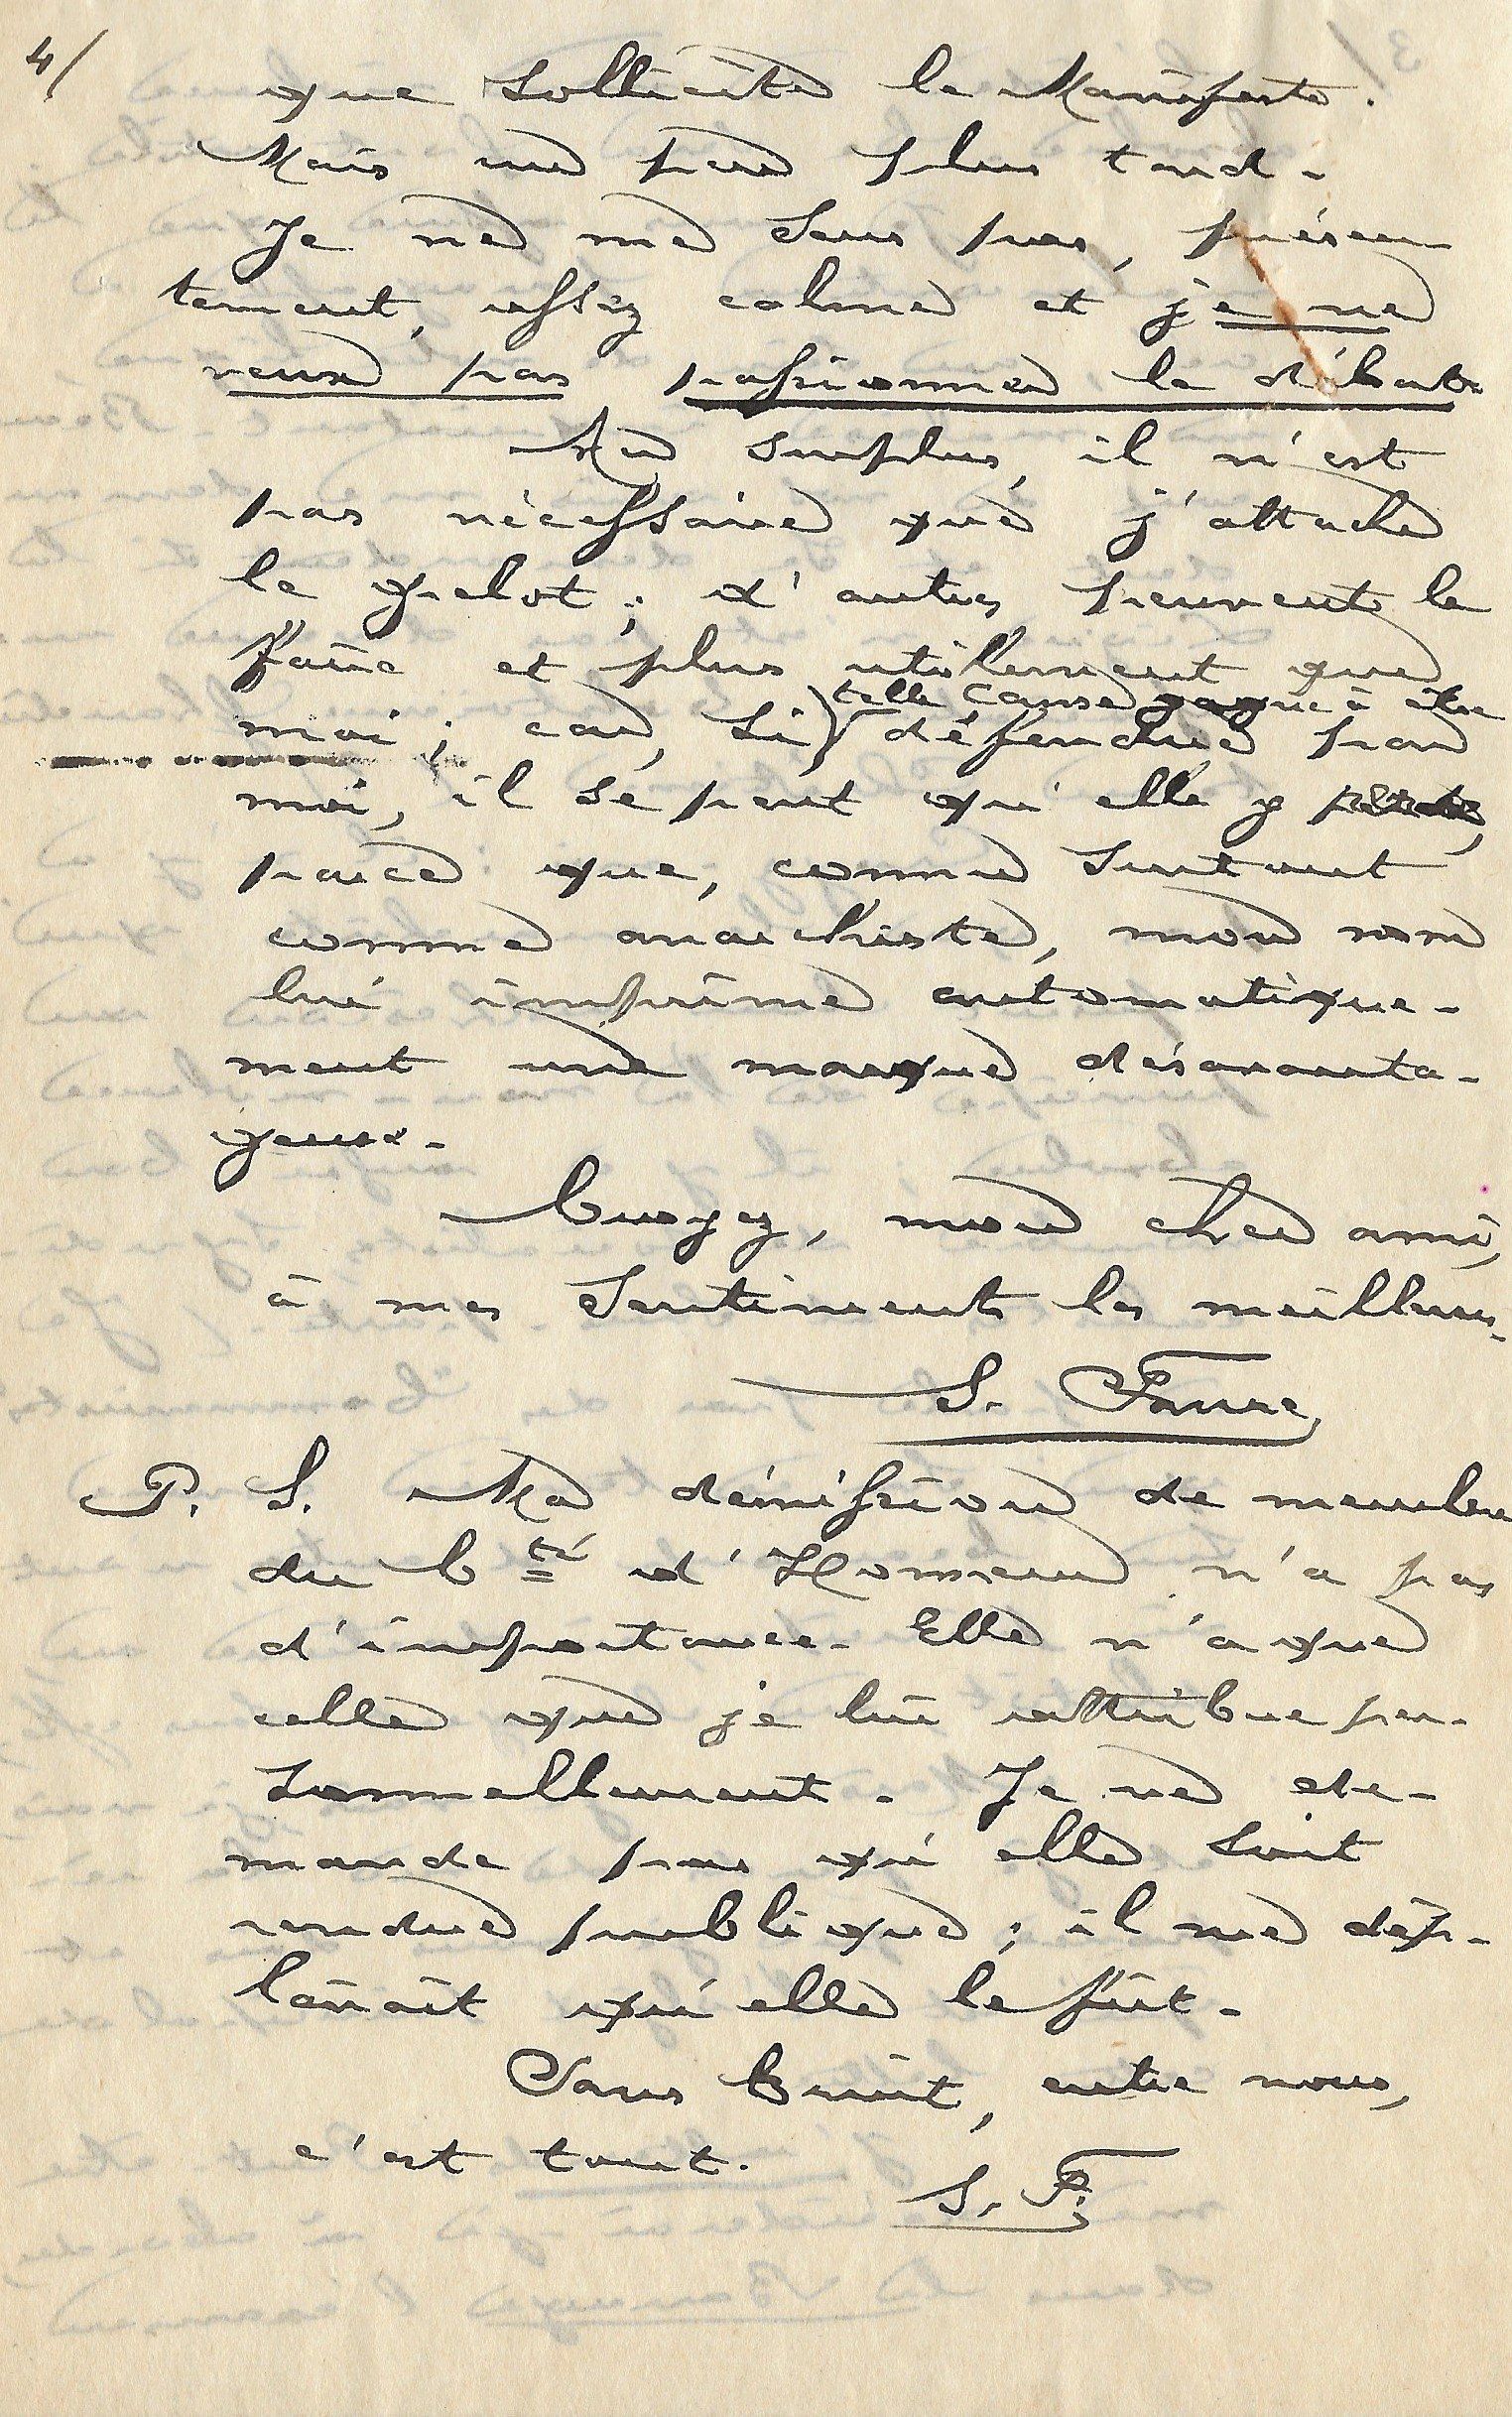 4/
que sollicite le Manifeste.
Mais un peu plus tard.
Je ne me sens pas, présen-
tement, assez calme et je ne
veux pas passionner le débat.
Au surplus, il n'est
pas nécessaire que j'attache
le grelot ; d'autres peuvent le
faire et plus utilement que
moi ; car, si telle cause gagne à être
défendue par
moi, il se peut qu'elle y perde,
parce que, connu surtout
comme anarchiste, mon nom
lui imprime automatique-
ment une marque désavanta-
geuse.
Croyez, mon cher ami,
à mes sentiments les meilleurs.
S. Faure,
P. S. Ma démission de membre
du Cté d'Honneur n'a pas
d'importance. Elle n'a que
celle que je lui attribue per-
sonnellement. Je ne de-
mande pas qu'elle soit
rendue publique ; il me dép-
lairait qu'elle le fût.
Sans bruit, entre nous,
c'est tout.
S. F.